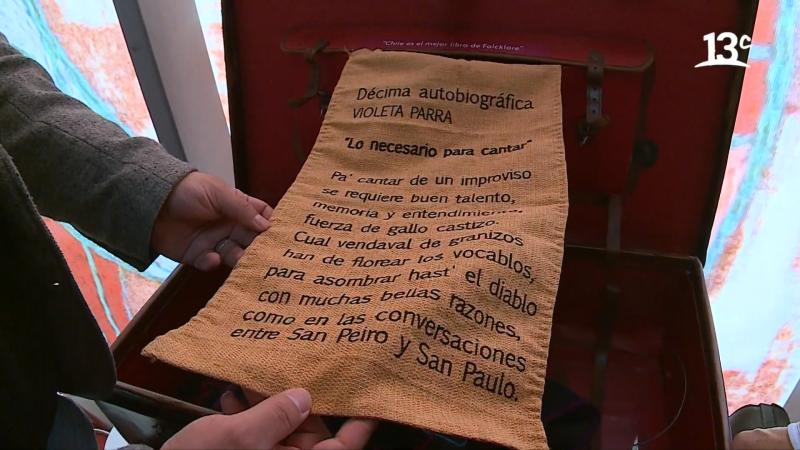 "Chile es el mejor libro de Folcklore"
13c
Décima autobiográfica
VIOLETA PARRA
"Lo necesario para cantar"
Pa' cantar de un improviso
se requiere buen talento,
memoria y entendimiento,
fuerza de gallo castizo.
Cual vendaval de granizos
han de florear los vocablos,
para asombrar hast' el diablo
con muchas bellas razones,
como en las conversaciones
entre San Peiro y San Paulo.